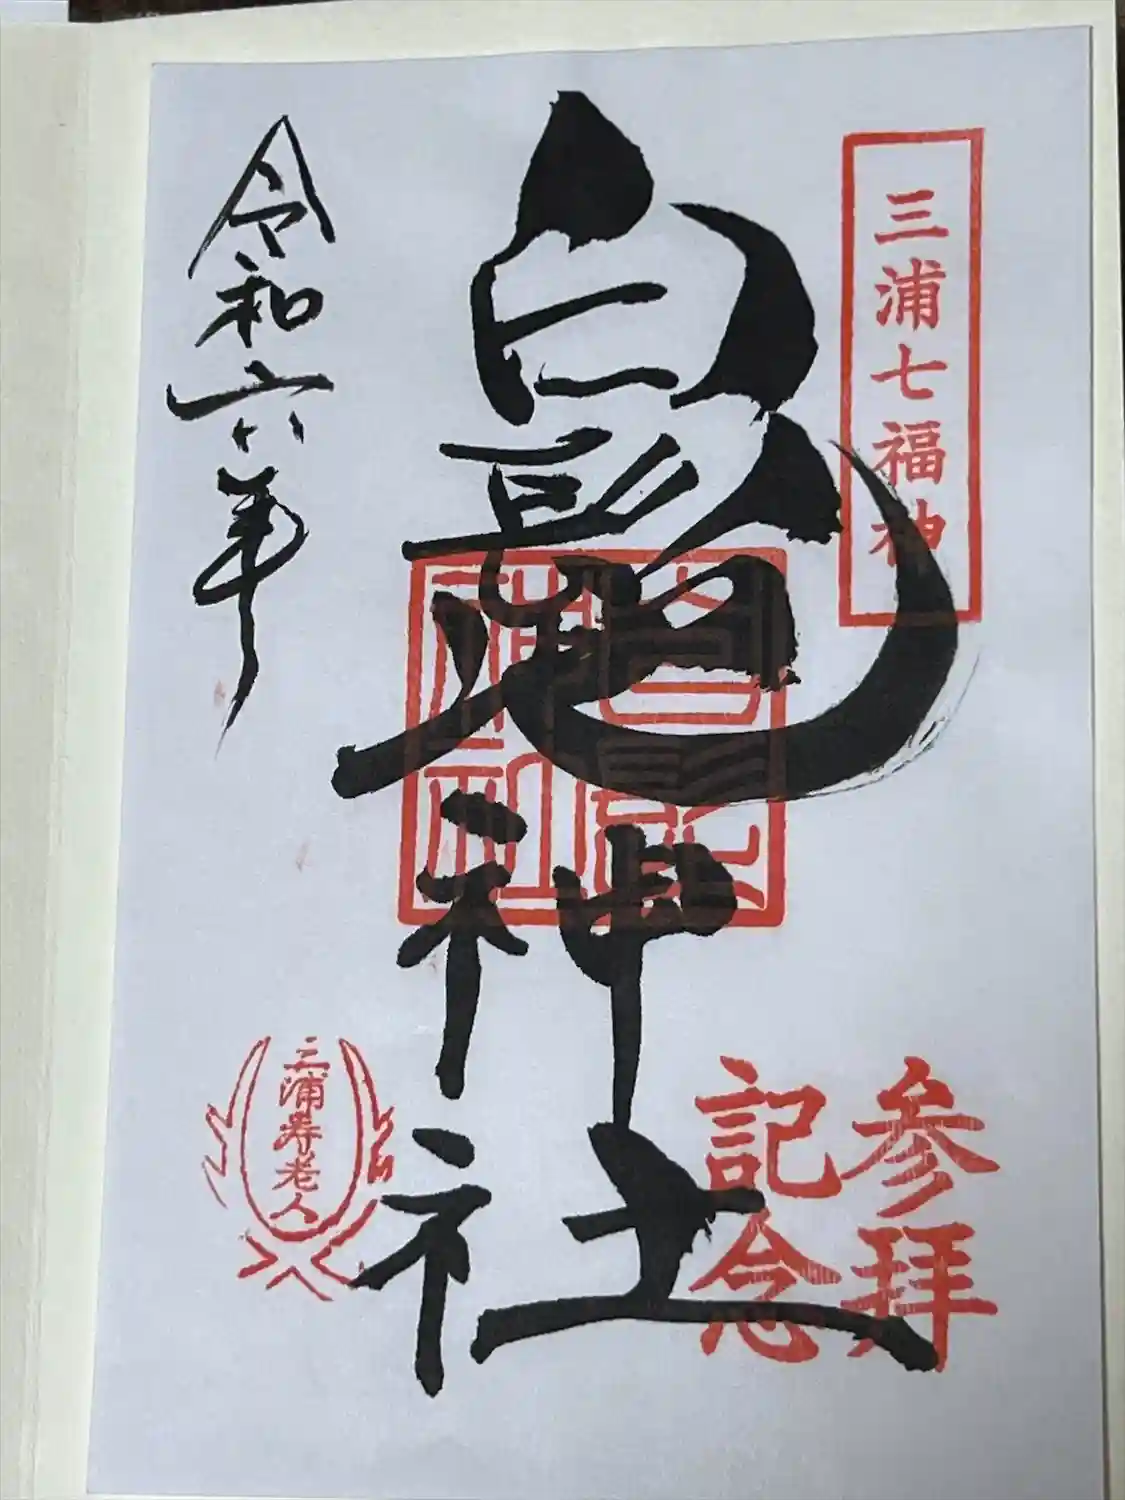 三浦七福神
参拝
記念
白髭神社
令和六年
三浦寿老人